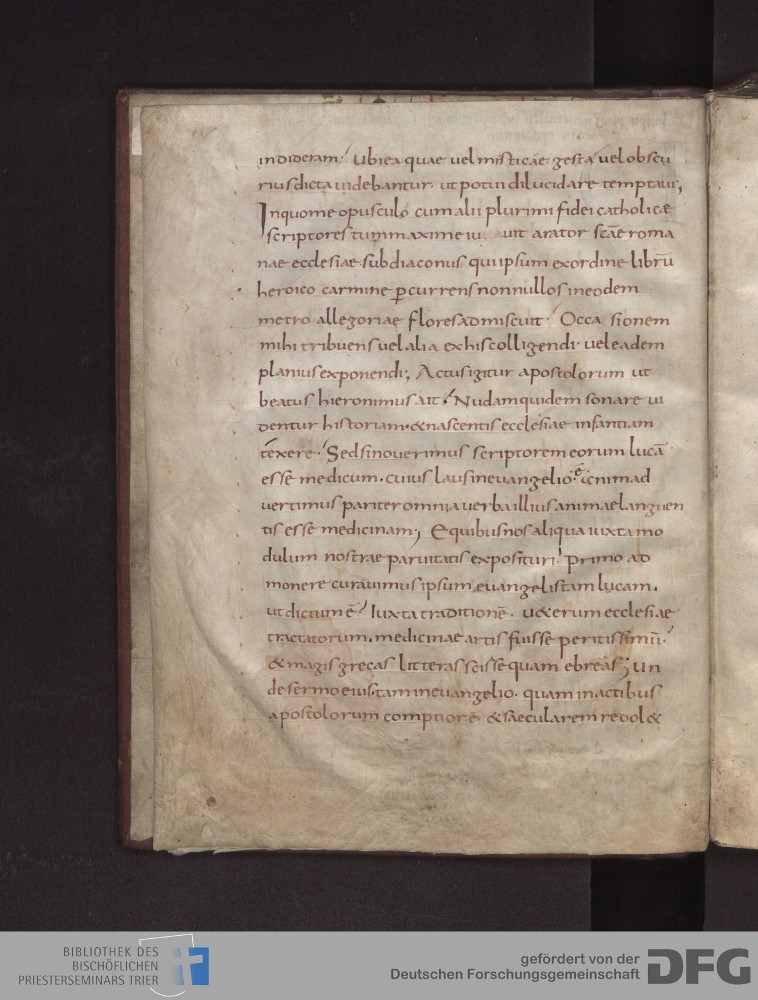 indideram. Ubi ea quae vel misticae gesta vel obscu
rius dicta videbantur. ut potui dilucidare temptavi;
In quo me opusculo cum alii plurimi fidei catholicae
scriptores tum maxime iu vit arator scae roma
nae ecclesiae subdiaconus qui ipsum ex ordine librū
heroico carmine ꝑcurrens non nullos in eodem
metro allegoriae flores admiscuit. Occa sionem
mihi tribuens vel alia ex his colligendi. vel eadem
planius exponendi; Actus igitur apostolorum ut
beatus hieronimus ait. Nudam quidem sonare vi
dentur historiam. & nascentis ecclesiae infantiam
texere. Sed si noverimus scriptorem eorum lucā
esse medicum. cuius laus in evangelio ē. animad
vertimus pariter omnia verba illius animae languen
tis esse medicinam; E quibus nos aliqua iuxta mo
dulum nostrae parvitatis exposituri. primo ad
monere curavimus ipsum evangelistam lucam.
ut dictum ē. Iuxta traditionē. u&erum ecclesiae
tractatorum. medicinae artis fuisse peritissimū.
& magis grecas litteras scisse quam ebreas; Un
de sermo eius. tam in evangelio. quam in actibus
apostolorum comptiore & saecularem redol&
BIBLIOTHEK DES
BISCHÖFLICHEN
PRIESTERSEMINARS TRIER
gefördert von der
Deutschen Forschungsgemeinschaft
DFG